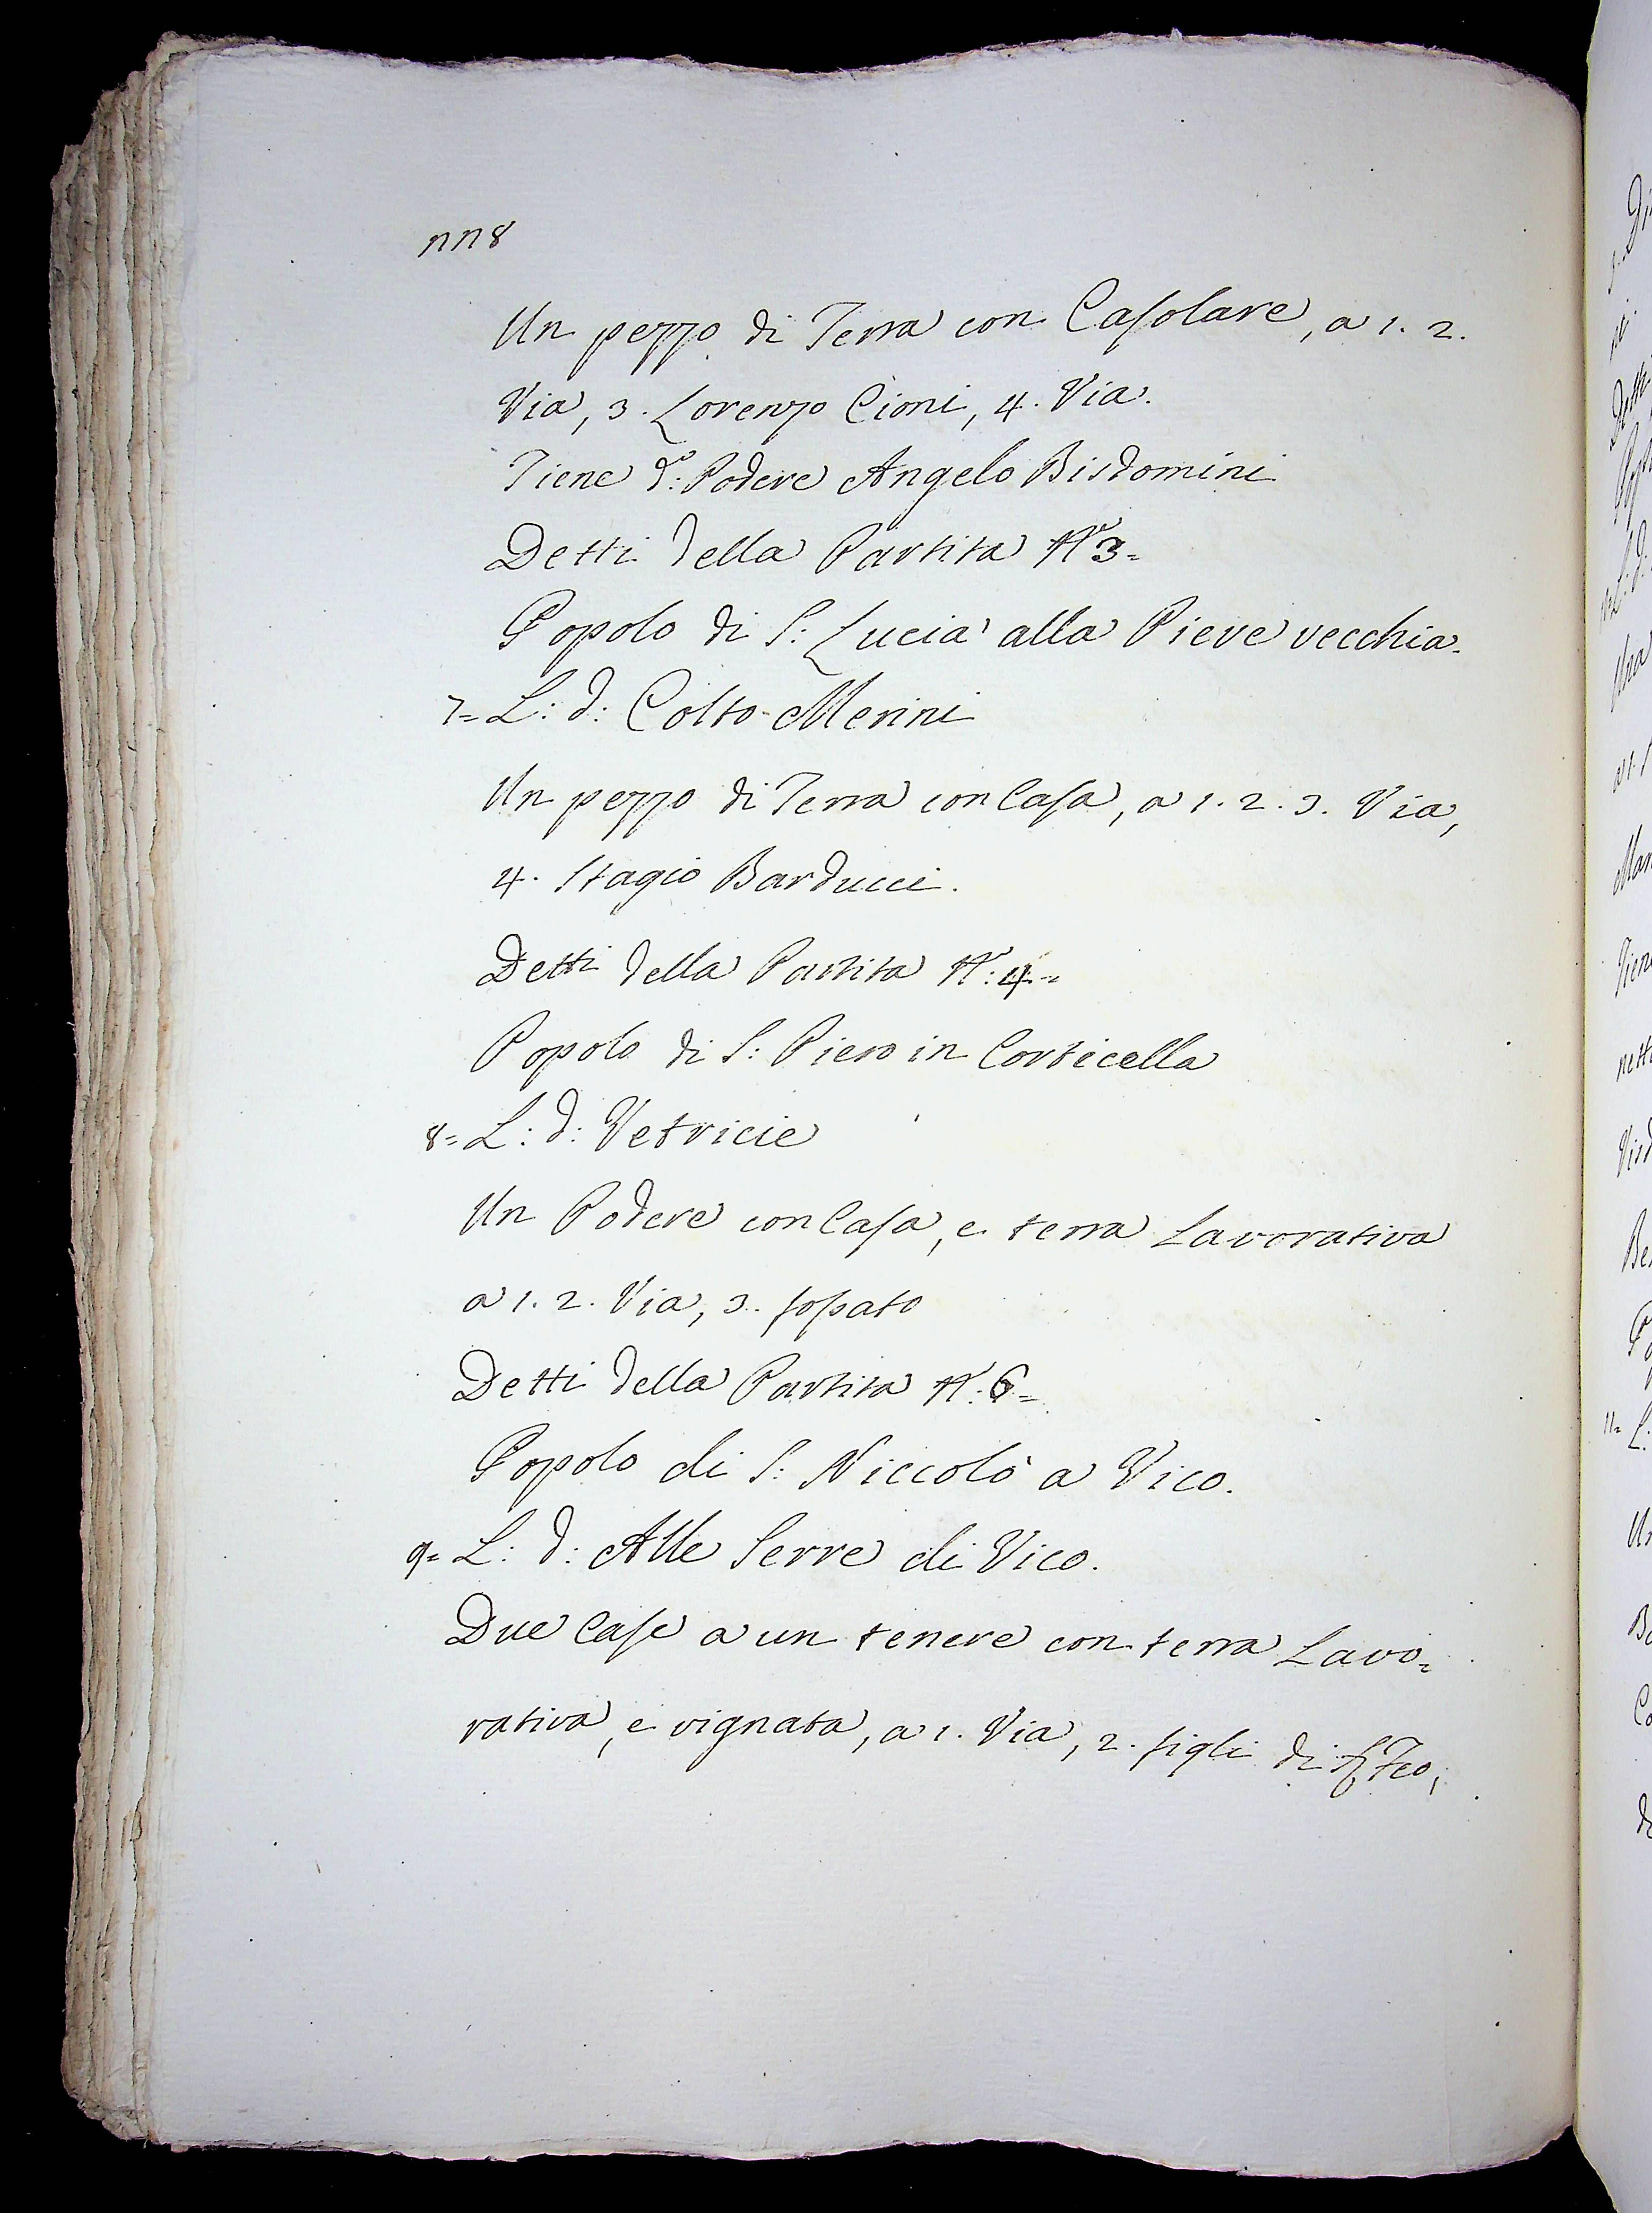 nn8
Un pezzo di Terra con Casolare, a 1. 2.
Via, 3. Lorenzo Cioni, 4. Via.
Tiene d.º Podere Angelo Bisdomini
Detti della Partita Nº 3=
Popolo di S: Lucia alla Pieve vecchia.
7= L: d: Colto Merini
Un pezzo di Terra con Casa, a 1. 2. 3. Via,
4. Stagio Barducci.
Detti della Partita Nº: 4=
Popolo di S: Piero in Corticella
8= L: d: Vetricie
Un Podere con Casa, e terra Lavorativa
a 1. 2. Via, 3. fossato
Detti della Partita Nº: 6=
Popolo di S: Niccolò a Vico.
9= L: d: Alle Serre di Vico.
Due Case a un tenere con terra Lavo=
rativa, e vignata, a 1. Via, 2. figli di